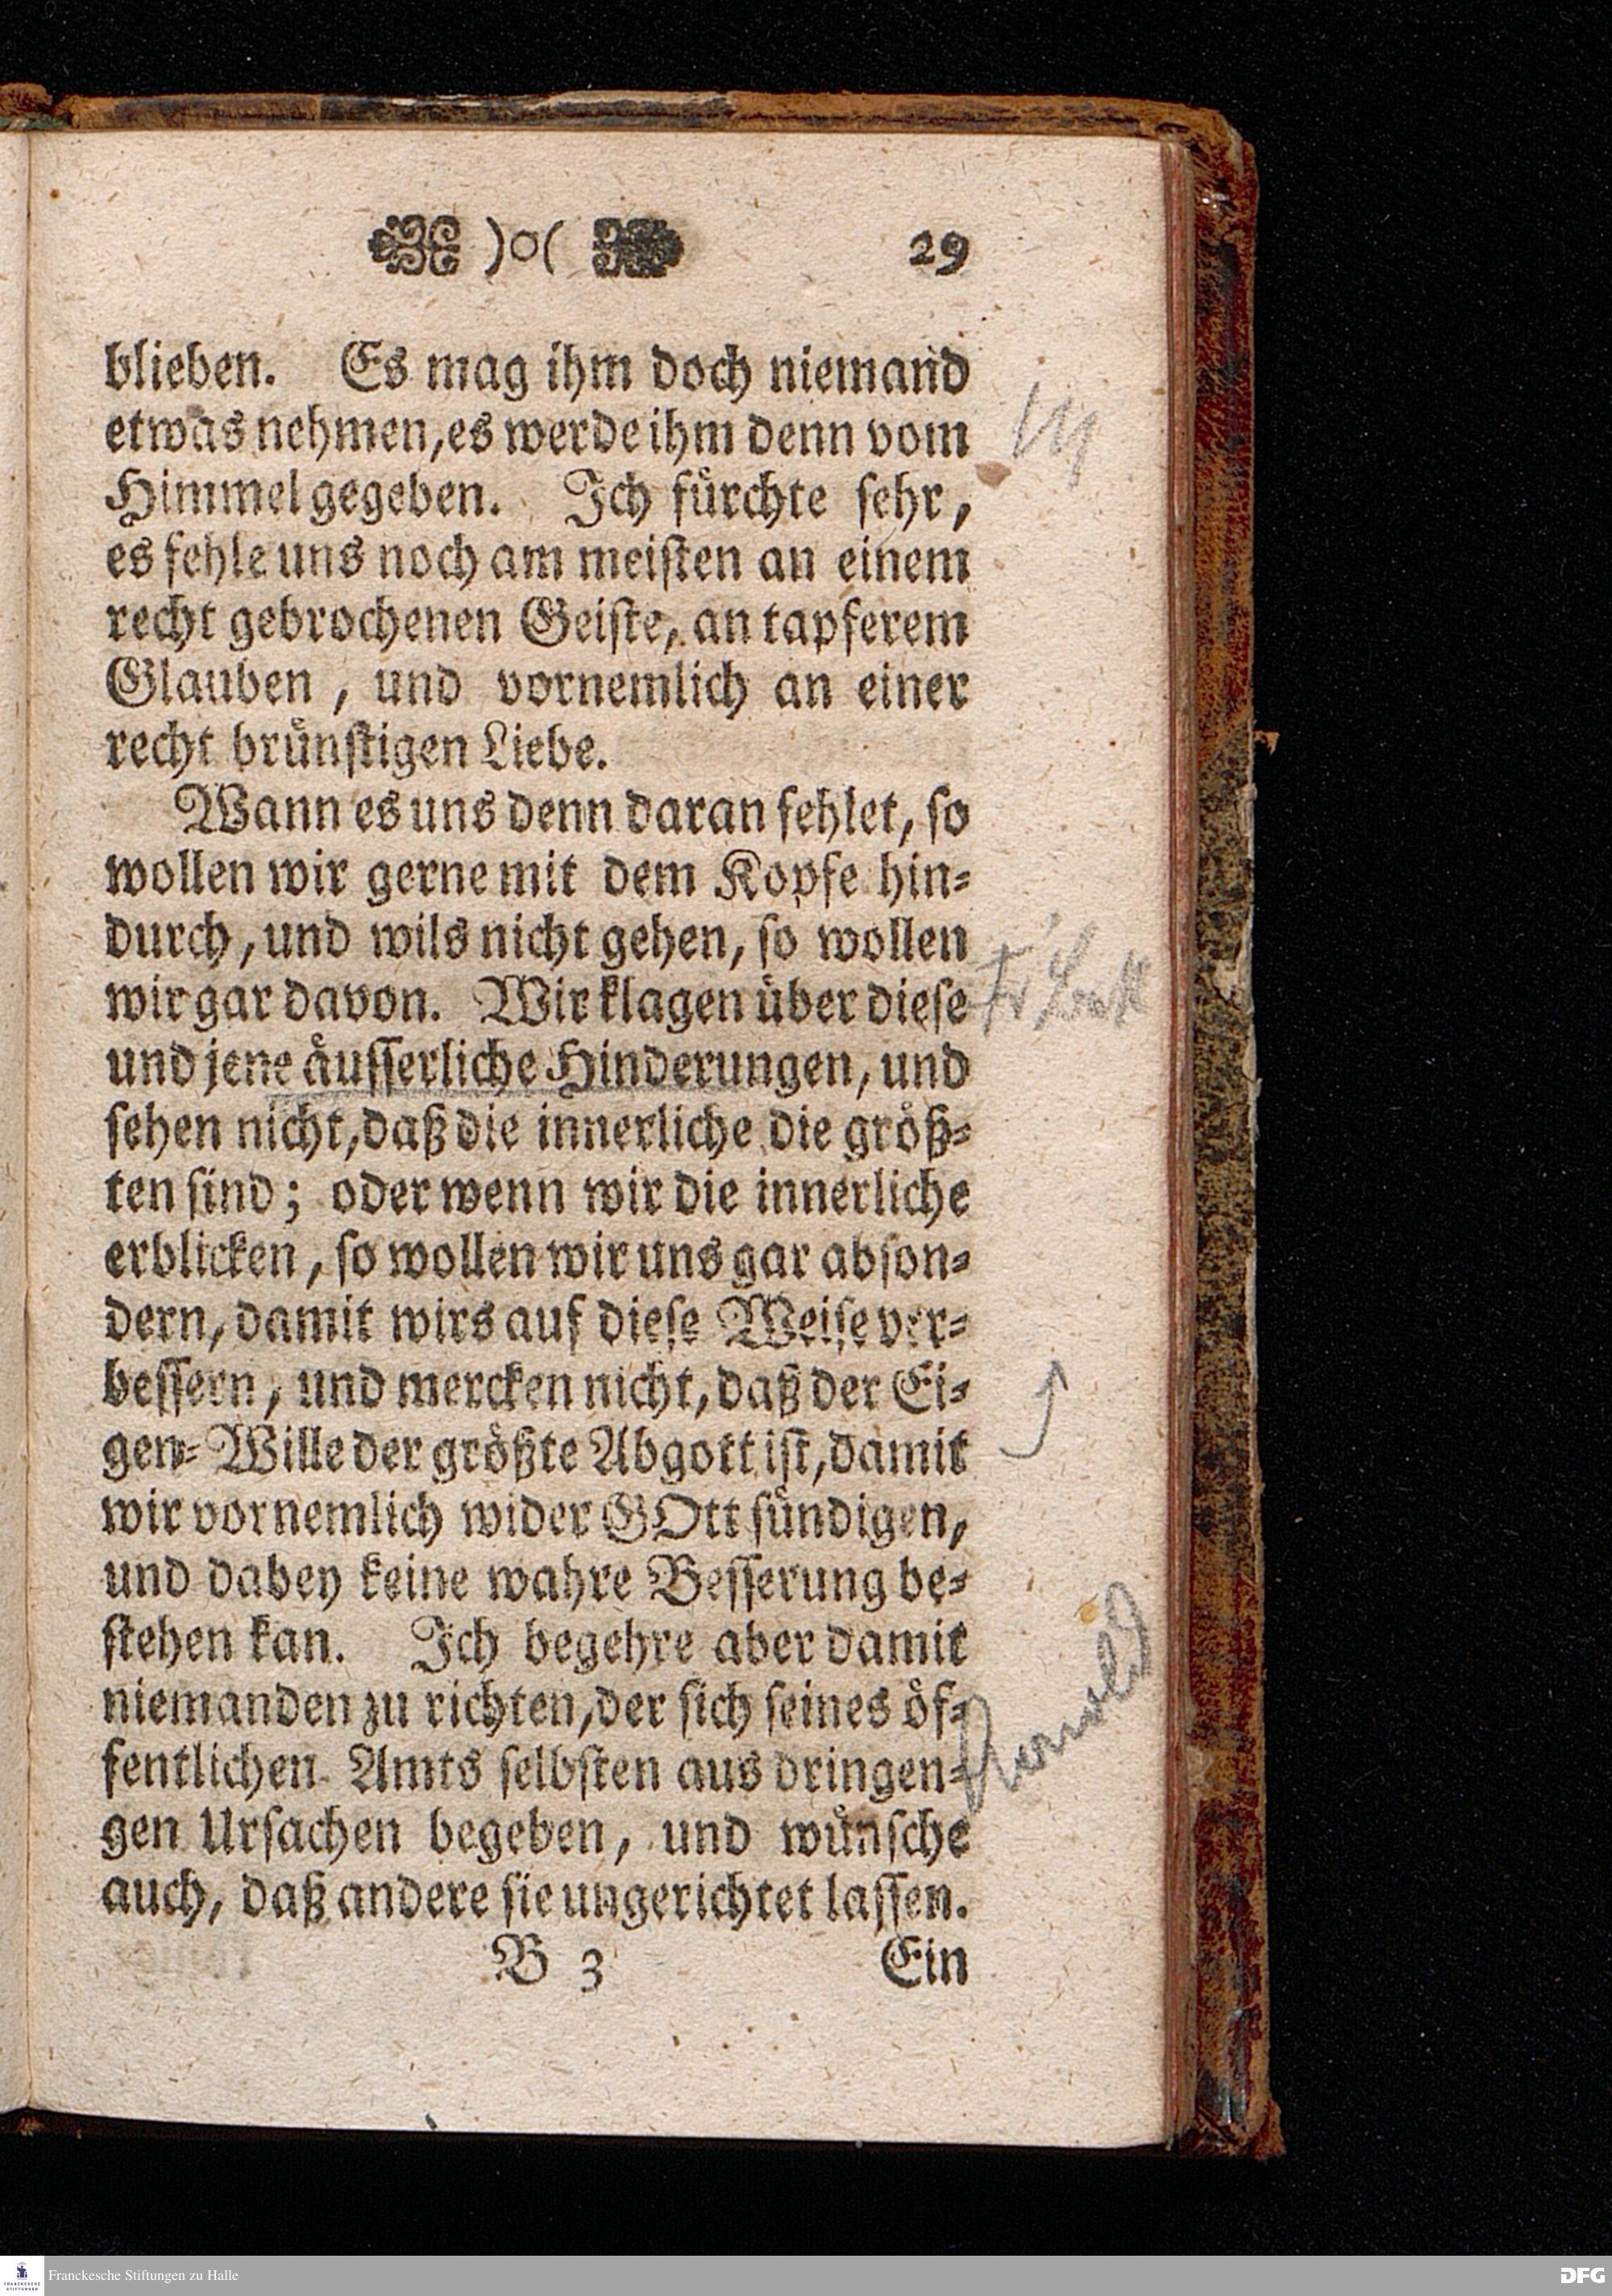 )o( 29
blieben. Es mag ihm doch niemand
etwas nehmen, es werde ihm denn vom
Himmel gegeben. Ich fürchte sehr,
es fehle uns noch am meisten an einem
recht gebrochenen Geiste, an tapferem
Glauben, und vornemlich an einer
recht brünstigen Liebe.
Wann es uns denn daran fehlet, so
wollen wir gerne mit dem Kopfe hin-
durch, und wils nicht gehen, so wollen
wir gar davon. Wir klagen über diese
und jene äusserliche Hinderungen, und
sehen nicht, daß die innerliche die größ-
ten sind; oder wenn wir die innerliche
erblicken, so wollen wir uns gar abson-
dern, damit wirs auf diese Weise ver-
bessern, und mercken nicht, daß der Ei-
gen-Wille der größte Abgott ist, damit
wir vornemlich wider GOtt sündigen,
und dabey keine wahre Besserung be-
stehen kan. Ich begehre aber damit
niemanden zu richten, der sich seines öf-
fentlichen Amts selbsten aus dringen-
gen Ursachen begeben, und wünsche
auch, daß andere sie ungerichtet lassen.
B 3 Ein
Franckesche Stiftungen zu Halle
FRANCKESCHE STIFTUNGEN
DFG